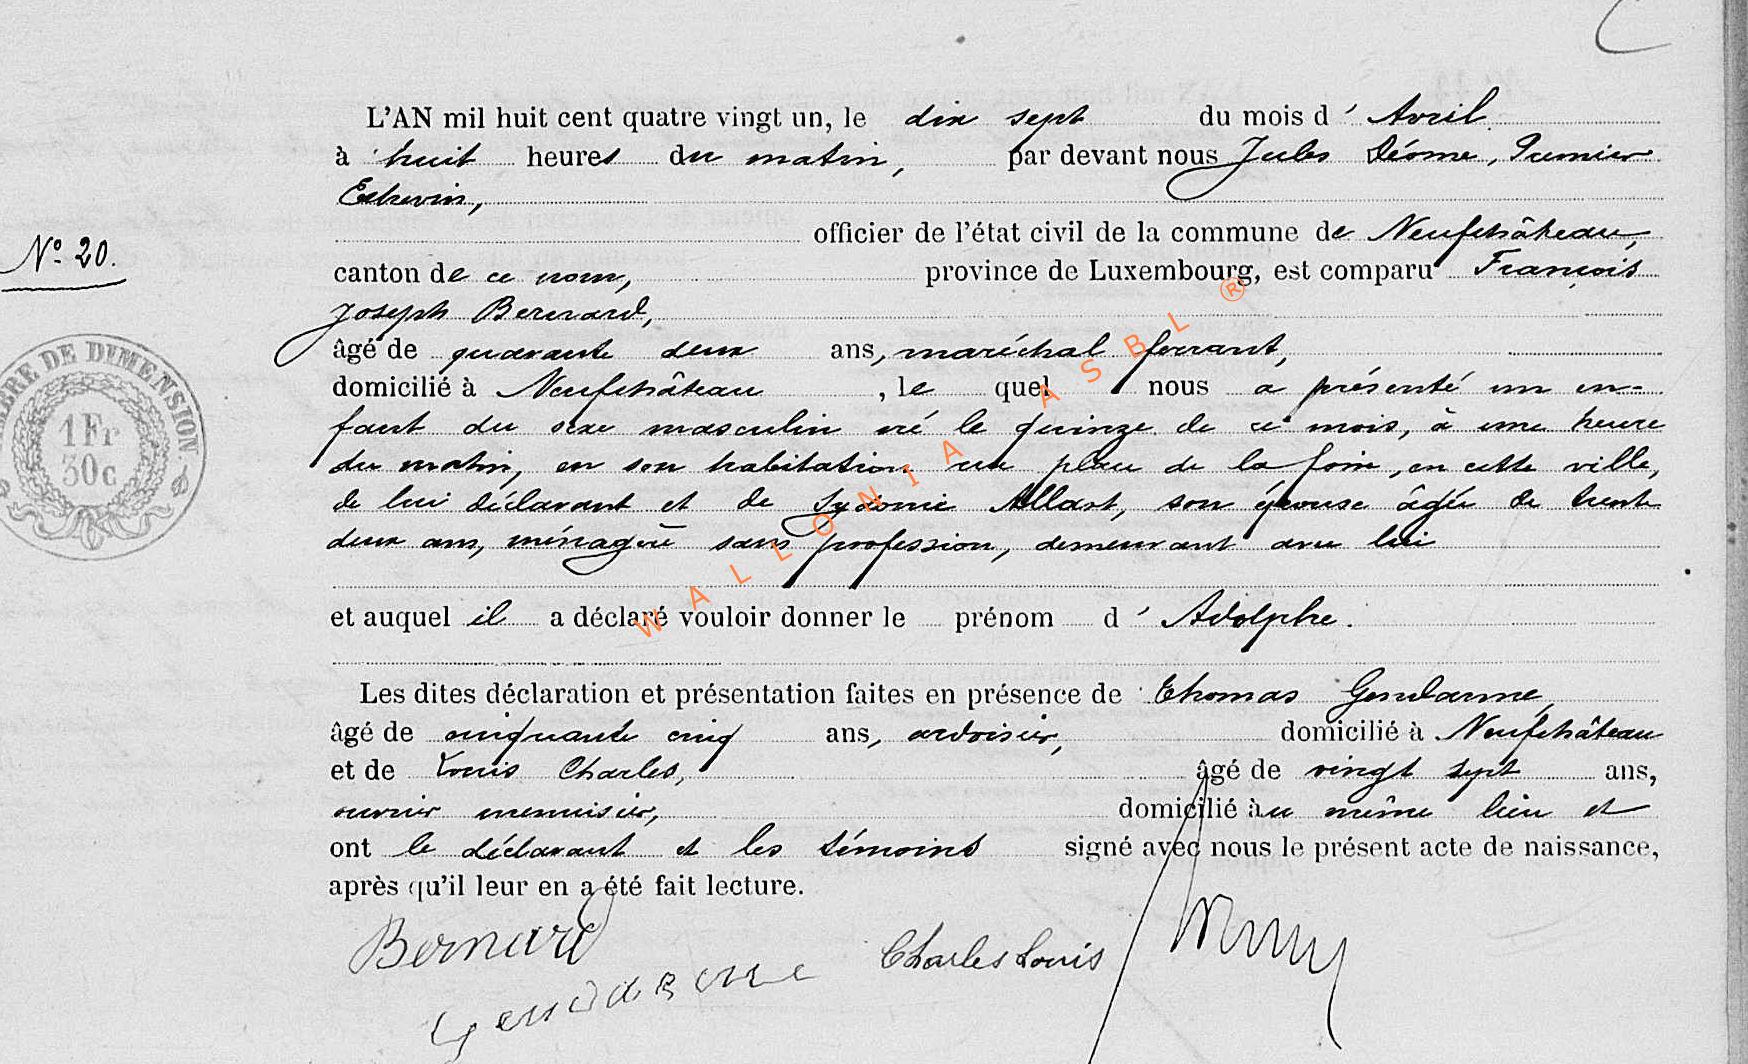 L'AN mil huit cent quatre vingt un, le dix sept du mois d' Avril
à huit heures du matin, par devant nous Jules Déome, Premier
Echevin,
officier de l'état civil de la commune de Neufchâteau,
N° 20.
canton de ce nom, province de Luxembourg, est comparu François
Joseph Bernard,
âgé de quarante deux ans, maréchal ferrant,
domicilié à Neufchâteau, le quel nous a présenté un en=
fant du sexe masculin né le quinze de ce mois, à une heure
du matin, en son habitation place de la foire, en cette ville,
de lui déclarant et de Sydonie Allart, son épouse âgée de trente
deux ans, ménagère sans profession, demeurant avec lui
et auquel il a déclaré vouloir donner le prénom d' Adolphe.
Les dites déclaration et présentation faites en présence de Thomas Gendarme,
âgé de cinquante cinq ans, ardoisier, domicilié à Neufchâteau
et de Louis Charles, âgé de vingt sept ans,
ouvrier menuisier, domicilié au même lieu et
ont le déclarant et les témoins signé avec nous le présent acte de naissance,
après qu'il leur en a été fait lecture.
Bernard
Charles Louis
Gendarme
TIMBRE DE DIMENSION
1 Fr
30 c
WALLONIA ASBL ®